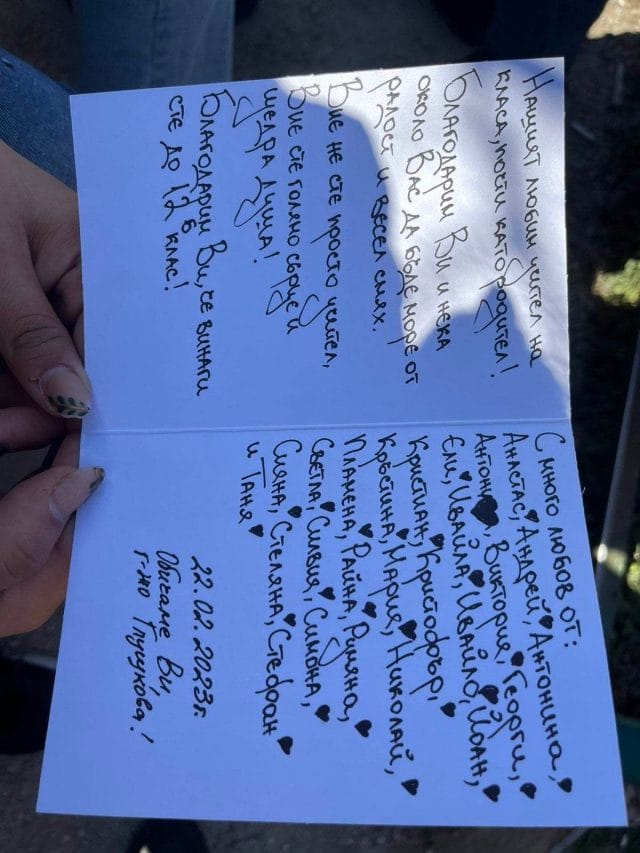 Нашият любим учител на
класа, почти като родител!
Благодарим Ви и нека
около Вас да бъде море от
радост и весел смях.
Вие не сте просто учител,
Вие сте голямо сърце и
щедра душа!
Благодарим Ви, че винаги
сте до 12 б клас!
С много любов от:
Анастас, Андрей, Антонина,
Антони, Виктория, Георги,
Ели, Ивайла, Ивайло, Йоан,
Кристиан, Кристофър,
Кръстина, Мария, Николай,
Пламена, Райна, Румяна,
Светла, Силвия, Симона,
Сияна, Стеляна, Стефан
и Таня
22.02.2023г.
Обичаме Ви,
г-жо